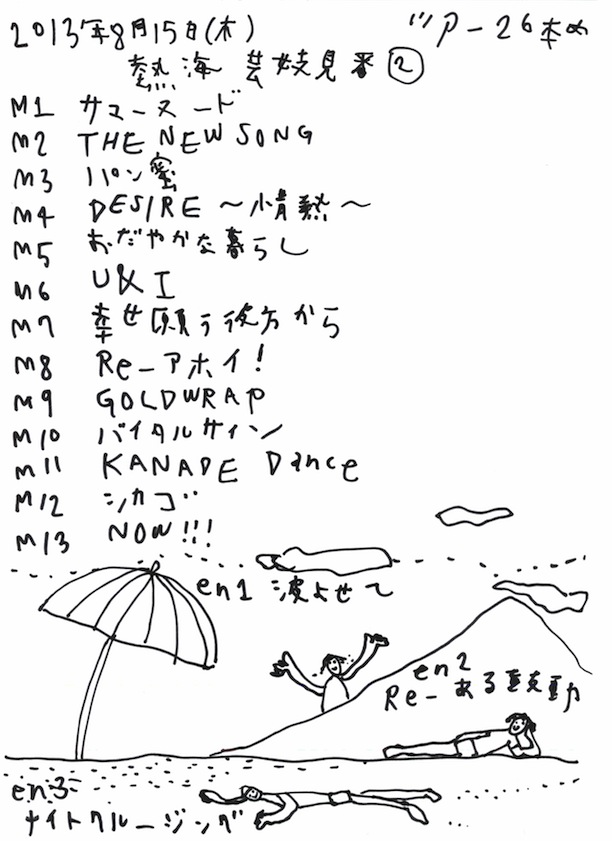 2013年8月15日(木) ツアー26本め
熱海 芸妓見番②
M1 サマーヌード
M2 THE NEW SONG
M3 パン蜜
M4 DESIRE ～情熱～
M5 おだやかな暮らし
M6 U&I
M7 幸せ願う彼方から
M8 Re-アホイ!
M9 GOLDWRAP
M10 バイタルサイン
M11 KANADE Dance
M12 シカゴ
M13 NOW!!!
en1 波よせて
en2
Re-ある鼓動
en3
ナイトクルージング